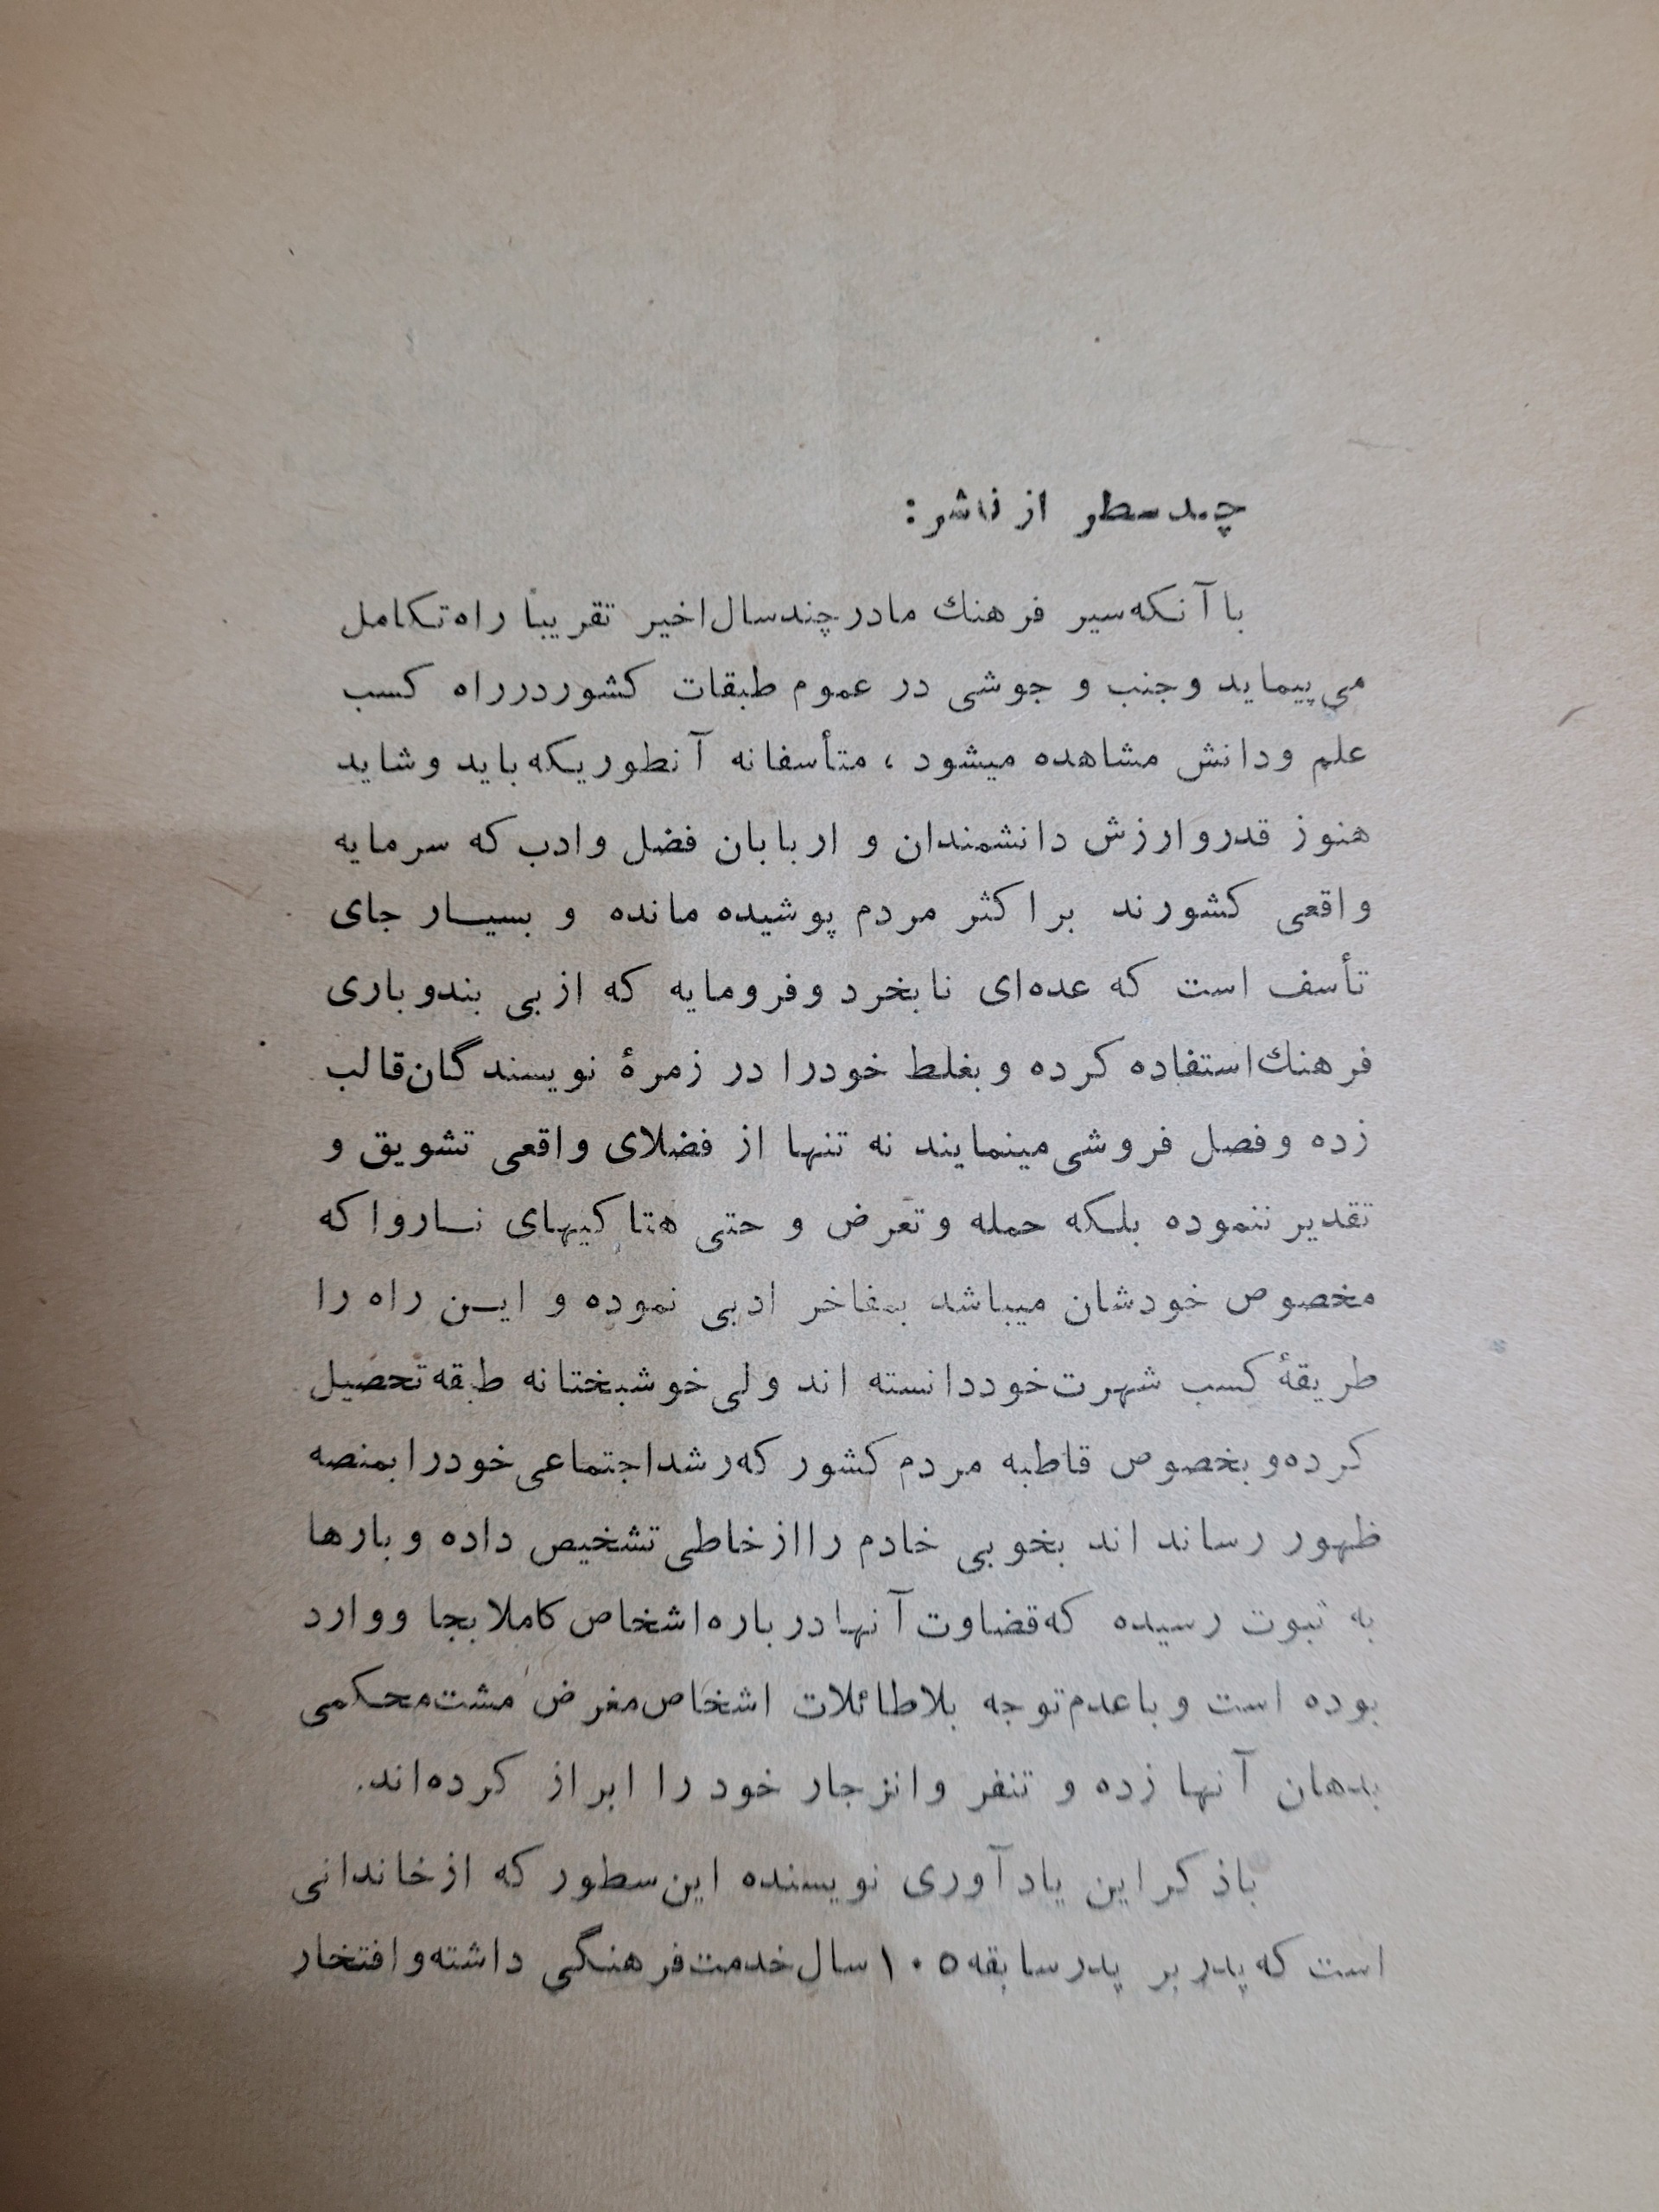 چند سطر از ناشر:
با آنکه سیر فرهنك ما در چند سال اخیر تقریبا راه تکامل
می پیماید و جنب و جوشی در عموم طبقات کشور در راه کسب
علم و دانش مشاهده میشود ، متأسفانه آنطوریکه باید و شاید
هنوز قدر و ارزش دانشمندان و اربابان فضل و ادب که سرمایه
واقعی کشورند بر اکثر مردم پوشیده مانده و بسیار جای
تأسف است که عده‌ای نابخرد و فرومایه که از بی بندو باری
فرهنك استفاده کرده و بغلط خودرا در زمرهٔ نویسندگان قالب
زده و فصل فروشی مینمایند نه تنها از فضلای واقعی تشویق و
تقدیر ننموده بلکه حمله و تعرض و حتی هتاکیهای ناروا که
مخصوص خودشان میباشد بمفاخر ادبی نموده و این راه را
طریقهٔ کسب شهرت خود دانسته اند ولی خوشبختانه طبقه تحصیل
کرده و بخصوص قاطبه مردم کشور که رشد اجتماعی خودرا بمنصه
ظهور رساند اند بخوبی خادم را از خاطی تشخیص داده و بارها
به ثبوت رسیده که قضاوت آنها در باره اشخاص کاملا بجا و وارد
بوده است و با عدم توجه بلاطائلات اشخاص مغرض مشت محکمی
بدهان آنها زده و تنفر و انزجار خود را ابراز کرده‌اند.
با ذکر این یاد آوری نویسنده این سطور که از خاندانی
است که پدر بر پدر سابقه ۱۰۵ سال خدمت فرهنگی داشته و افتخار